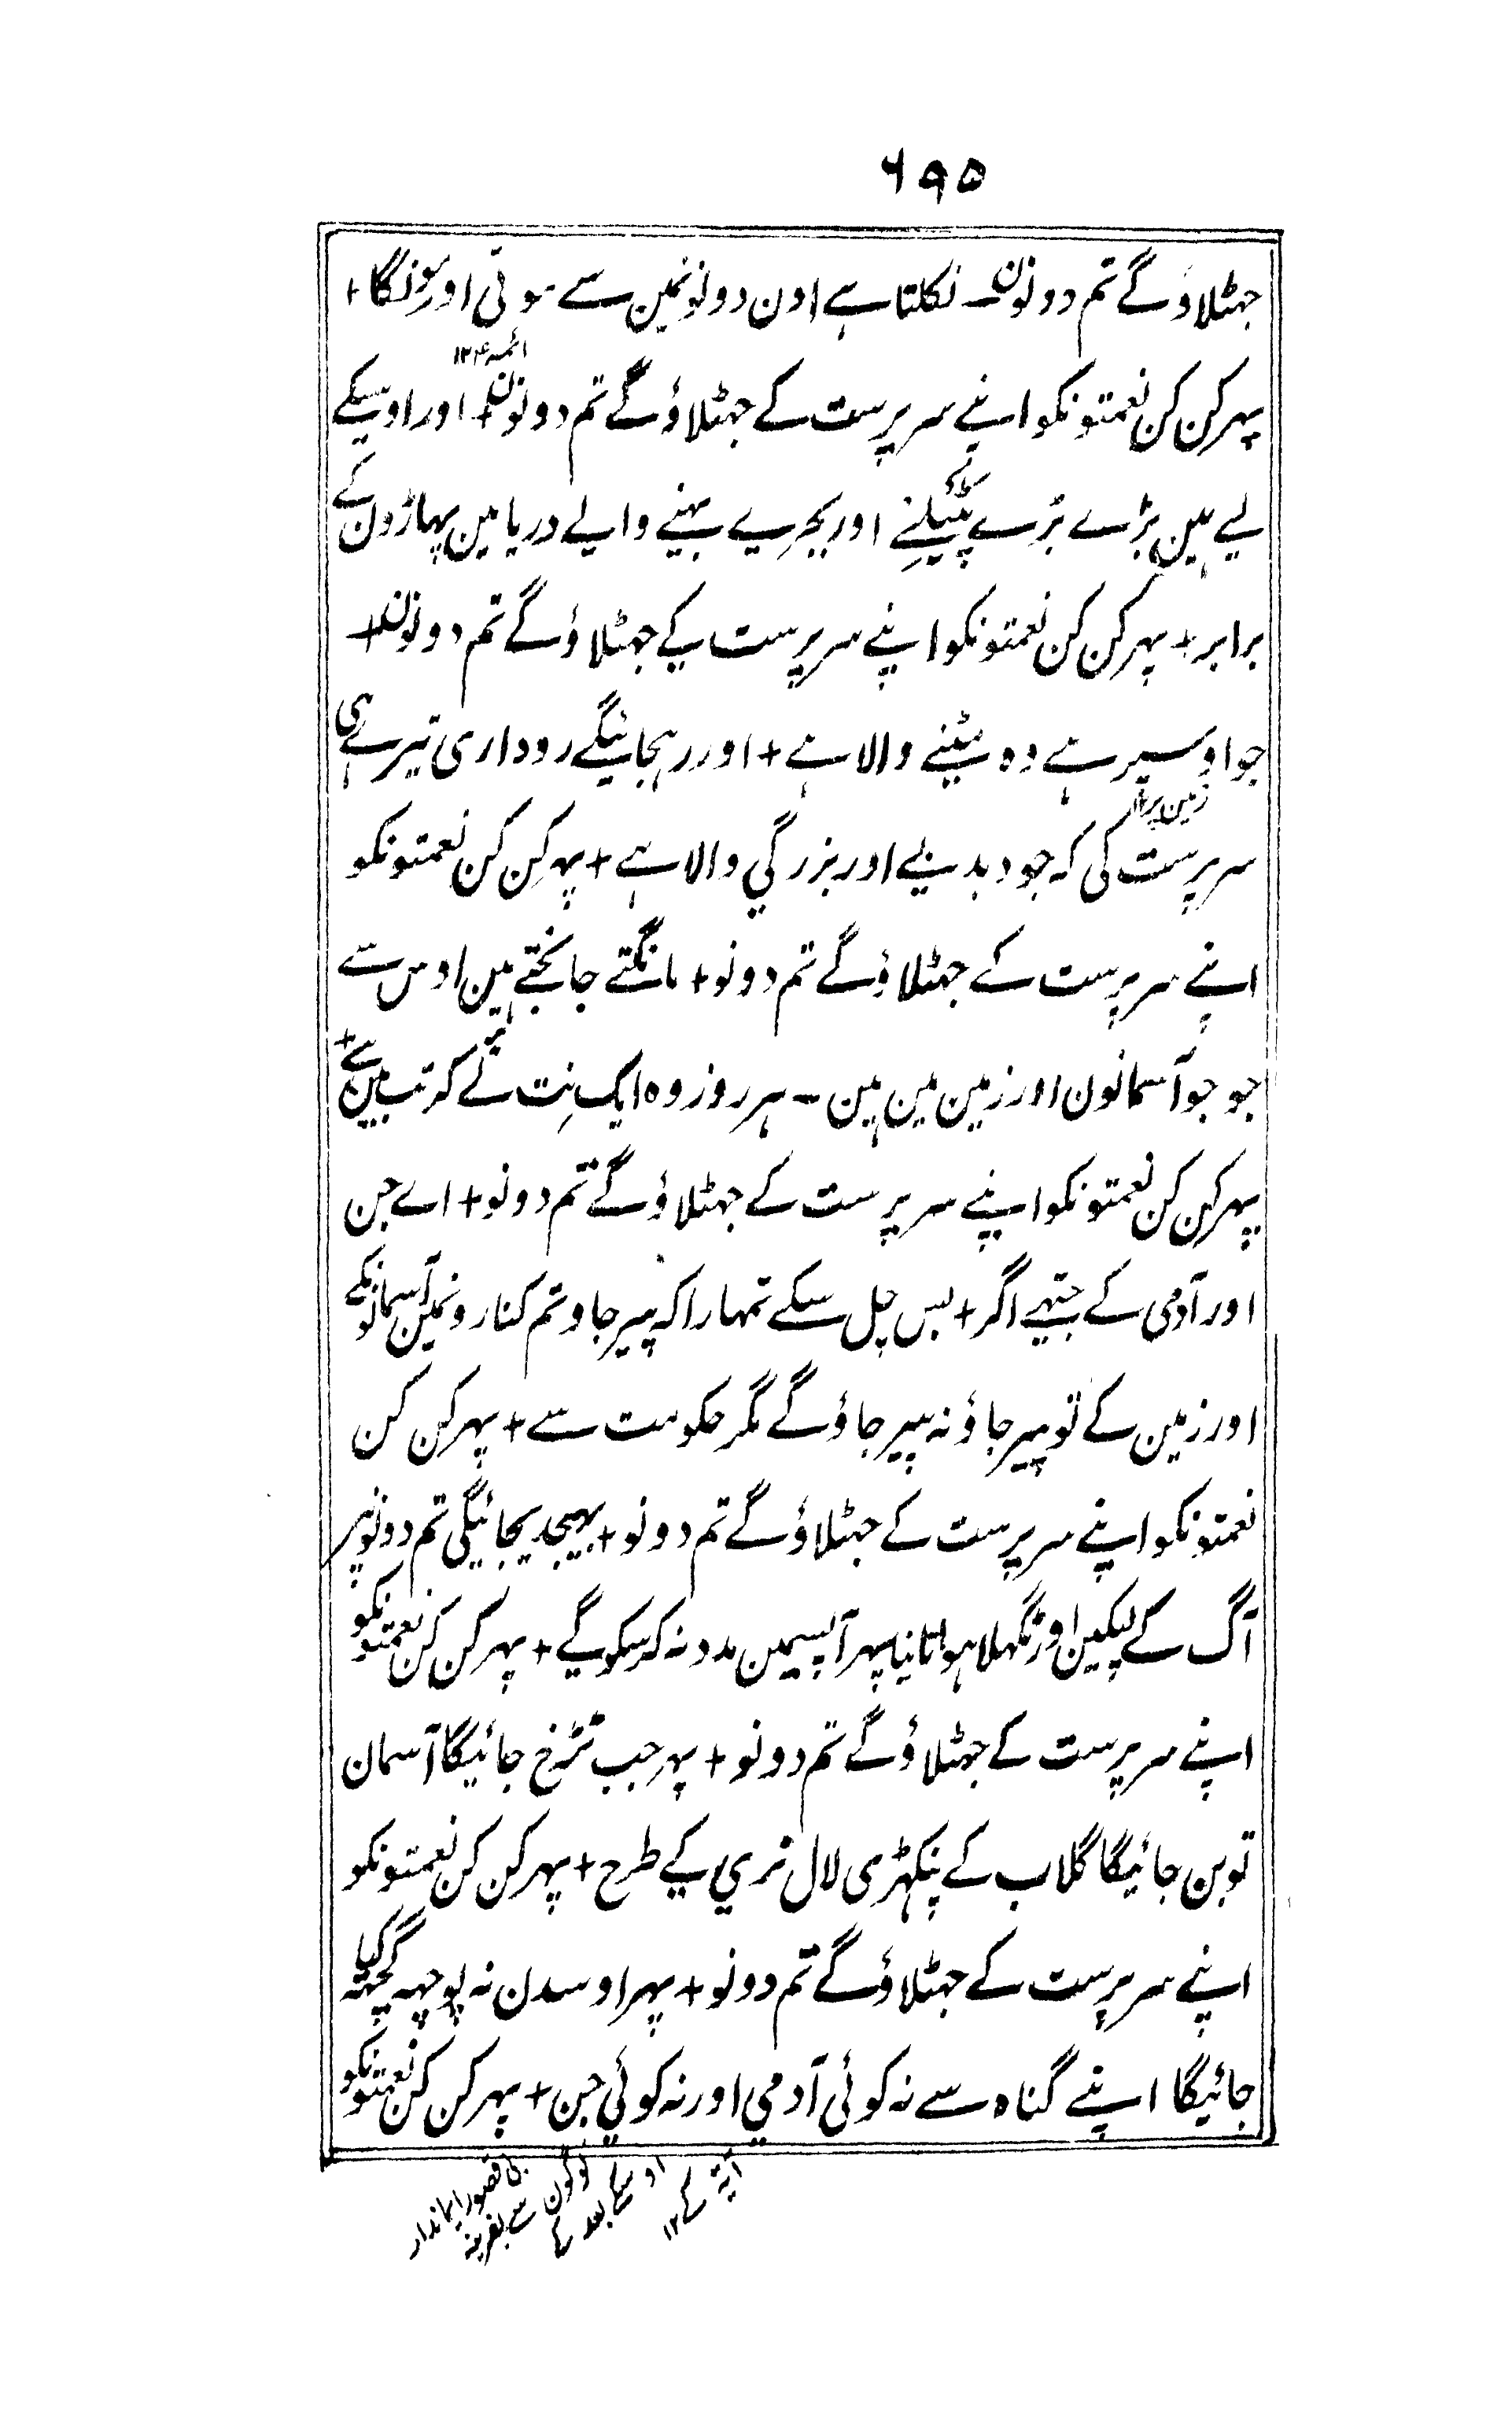 ۶۹۵
جہٹلاؤگے تم دونون۔ نکلتا ہے اون دونونمین سے موتی اور مونگا +
ائمہ۴ ۱۲
پہر کن کن نعمتونکو اپنے سرپرست کے جہٹلاؤگے تم دونون + اور اوسیکے
لیے ہین بڑے بڑے پٹیلے اور بجرے بہنے والے دریا مین پہاڑون کے
برابر + پہر کن کن نعمتونکو اپنے سرپرست کے جہٹلاؤگے تم دونون +
جو اوسپر ہے وہ مٹنے والا ہے + اور رہجائیگے روداری تیرے ہی
زمین پر ۱۲
سرپرست کی کہ جو دبدبے اور بزرگی والا ہے + پہر کن کن نعمتونکو
اپنے سرپرست کے جہٹلاؤگے تم دونو + مانگتے جانچتے ہین اوس سے
جو جو آسمانون اور زمین مین ہین ۔ ہر روز وہ ایک نِت نئے کرتب مین ہے +
پہر کن کن نعمتونکو اپنے سرپرست کے جہٹلاؤگے تم دونو + اے جن
اور آدمی کے جتہے اگر + بس چل سکے تمہارا کہ پیر جاو تم کنارونمین آسمانونکے
اور زمین کے تو پیر جاؤ نہ پیر جاؤگے مگر حکومت سے + پہر کن کن
نعمتونکو اپنے سرپرست کے جہٹلاؤگے تم دونو + بہیجدیجائیگی تم دونوپر
آگ کے لپکین اور پگہلا ہوا تانبا پہر آپسیمین مدد نہ کرسکوگے + پہر کن کن نعمتونکو
اپنے سرپرست کے جہٹلاؤگے تم دونو + پہر جب تڑخ جائیگا آسمان
تو بن جائیگا گلاب کے پنکہڑی لال نری کے طرح + پہر کن کن نعمتونکو
اپنے سرپرست کے جہٹلاؤگے تم دونو + پہر اوسدن نہ پوچہہ گچہہ کیا
جائیگا اپنے گناہ سے نہ کوئی آدمی اور نہ کوئی جن + پہر کن کن نعمتونکو
آیۃ کے ۱۲
اوسکے بعد کے
لوگون سے بقرینہ
بی قصور ایماندار